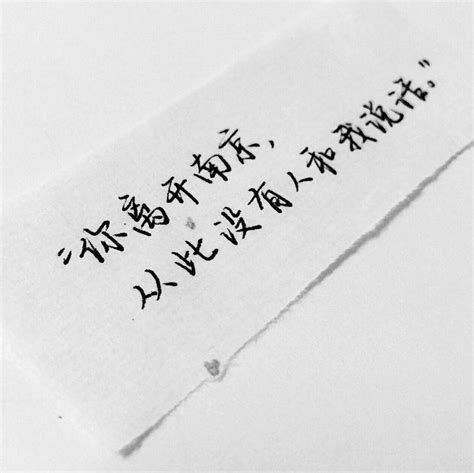 “你离开南京，
从此没有人和我说话。”